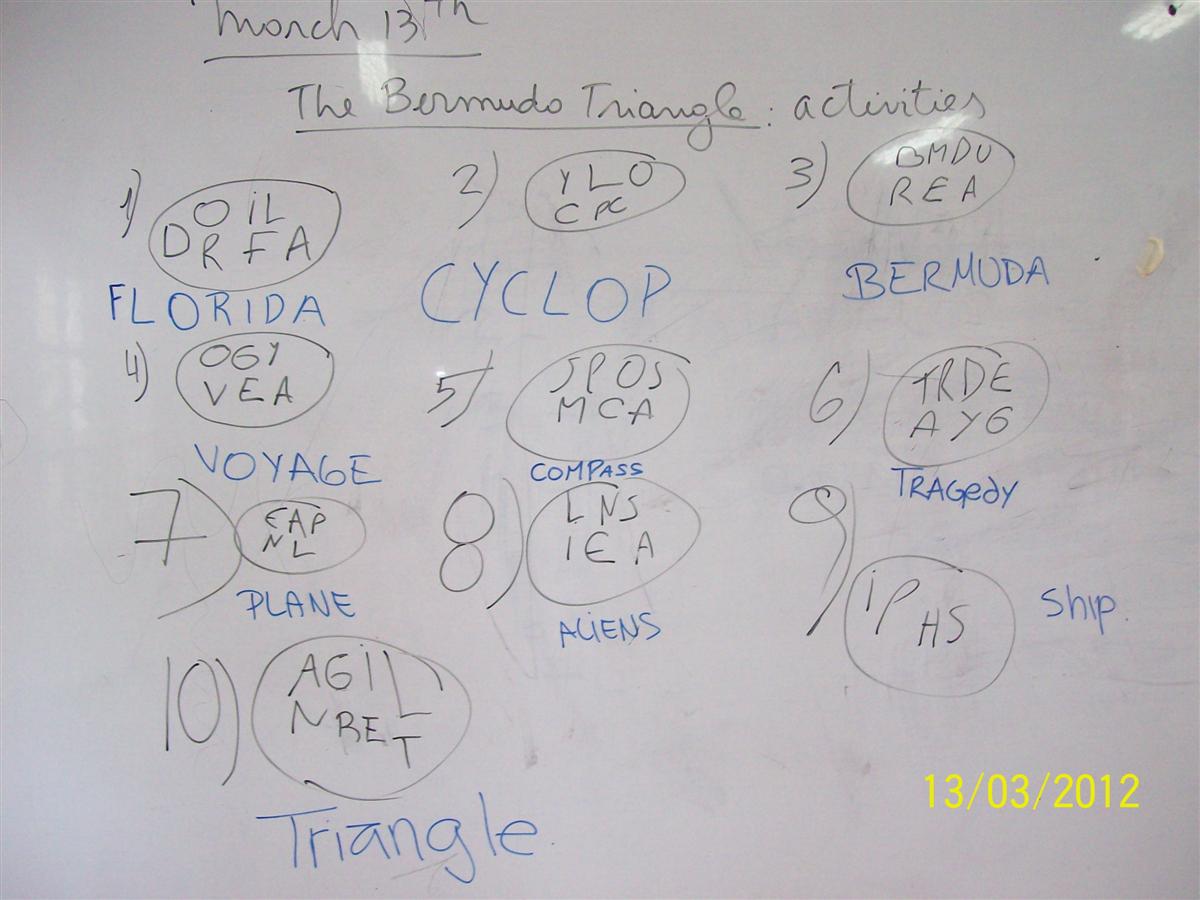 March 13th
The Bermuda Triangle: activities
1) OIL
DRFA
FLORIDA
2) YLO
CPC
CYCLOP
3) BMDU
REA
BERMUDA
4) OGY
VEA
VOYAGE
5) SPOS
MCA
COMPASS
6) TRDE
AYG
TRAGEDY
7) EAP
NL
PLANE
8) LNS
IEA
ALIENS
9) IP
HS
Ship.
10) AGIL
NRET
Triangle
13/03/2012